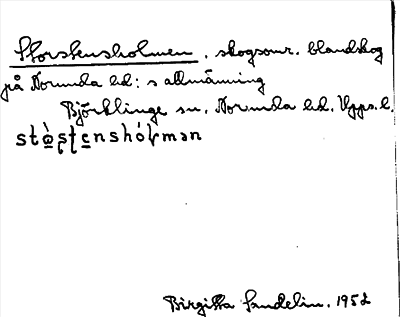 Storstensholmen, skogsomr. blandskog
på Norunda hd:s allmänning
Björklinge sn. Norunda hd. Upps. l.
Birgitta Sundelin. 1952